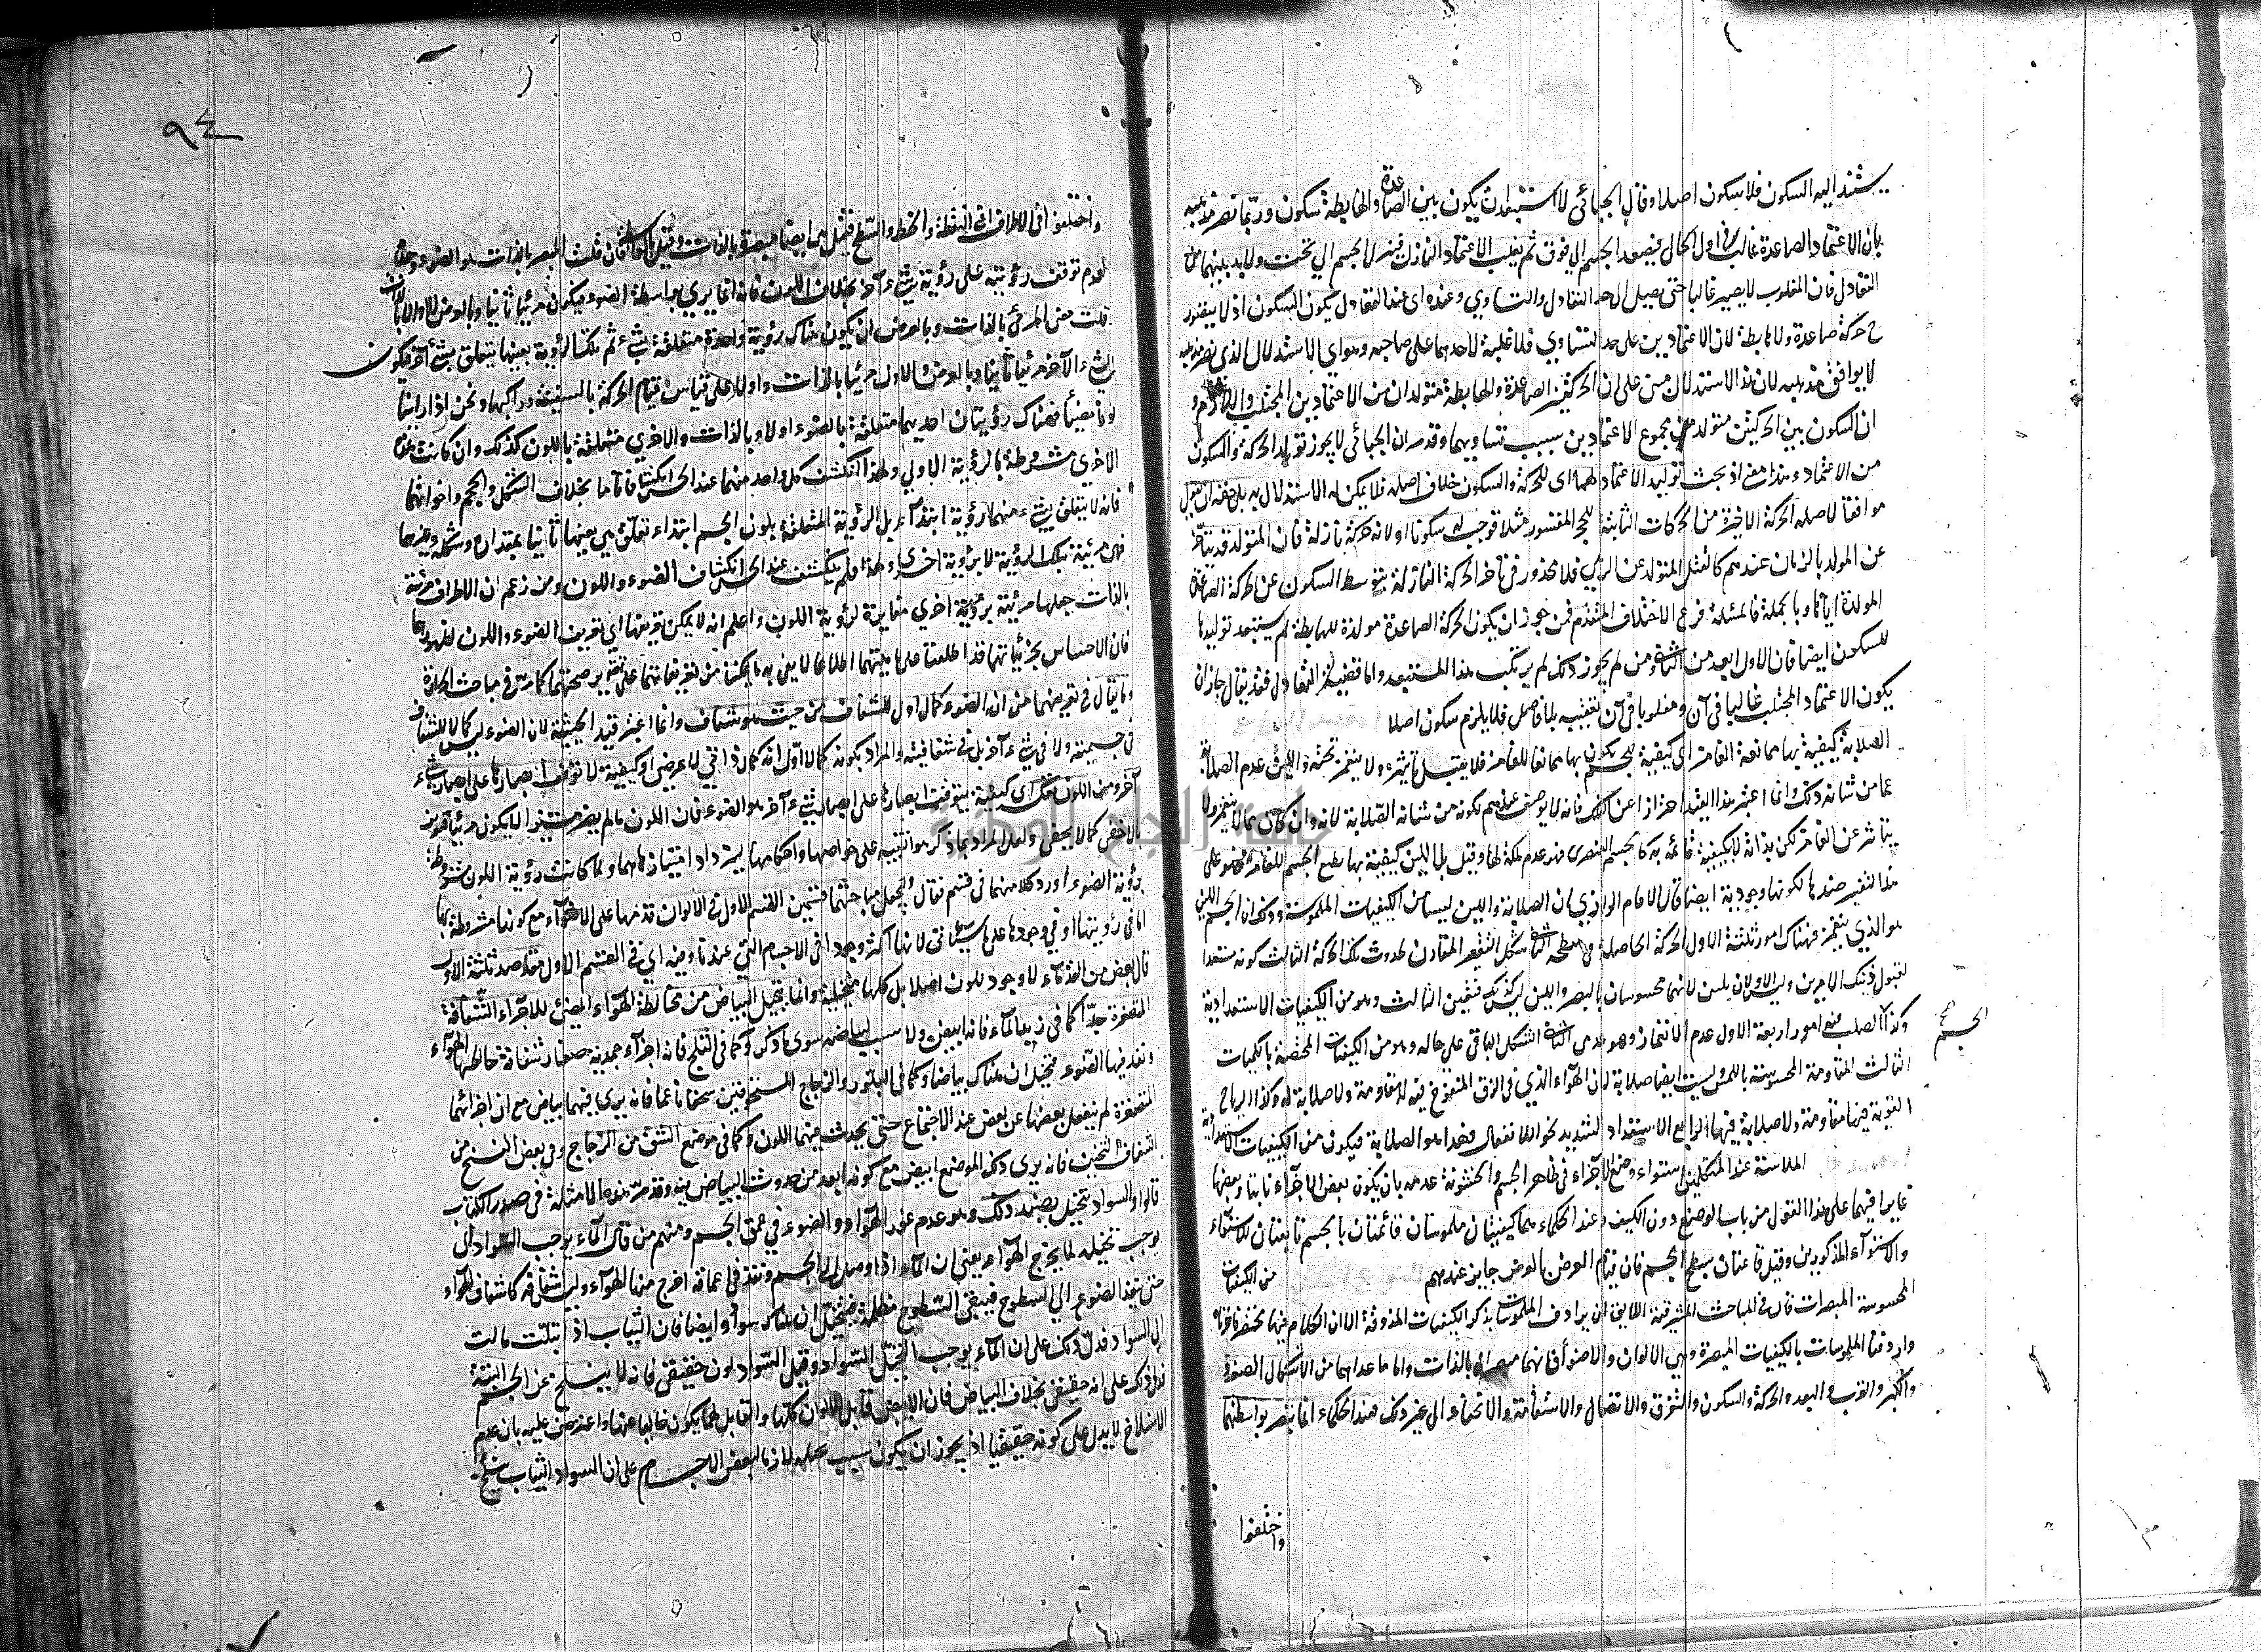 يستند اليه السكون فلا سكون اصلا وقال الجبائى لا استبعد ان يكون بين الصاعدة والهابطة سكون وربما نصر مذهبه
بان الاعتماد الصاعدة غالب فى اول الحال فيصعد الجسم الى فوق ثم يغلب الاعتماد النازل فينزل الجسم الى تحت ولا بد بينهما من
التعادل فان المغلوب لا يصير غالبا حتى يصل الى حد التعادل والتساوي وعنده اى عند التعادل يكون السكون اذ لا يتصور
ح حركة صاعدة ولا هابطة لان الاعتمادين على حد التساوي فلا غلبة لاحدهما على صاحبه وهو اي الاستدلال الذى نصر مذهبه
لا يوافق مذهبه لان هذا الاستدلال مبنى على ان الحركتين الصاعدة والهابطة متولدان من الاعتمادين المجتلب واللازم و
ان السكون بين الحركتين متولد من مجموع الاعتمادين بسبب تساويهما وقد مر ان الجبائى لا يجوز تولد الحركة والسكون
من الاعتماد بحث توليد الاعتماد لهما اى للحركة والسكون خلاف اصله فلا يمكن له الاستدلال به بل حقه ان يقول
موافقا لاصله الحركة الاخيرة من الحركات الثابتة للحجر المقسور مثلا توجب له سكونا اولا ثم حركة نازلة فان المتولد قد يتأخر
عن المولد بالزمان عندهم كالقتل المتولد عن الرمي فلا محذور فى تأخر الحركة النازلة بتوسط السكون عن الحركة الصاعدة
المولدة اياها وبالجملة فالمسئلة فرع الاختلاف المتقدم فمن جوز ان يكون الحركة الصاعدة مولدة للهابطة لم يستبعد توليدها
للسكون ايضا فان الاول ابعد من الثانى ومن لم يجوز ذلك لم يرتكب هذا المستبعد واما قضية التعادل فقد يقال جاز ان
يكون الاعتماد المجتلب غالبا فى آن ومغلوبا فى آن تعقبه بلا فاصل فلا يلزم سكون اصلا
الصلابة كيفية بها ممانعة الغامز اى كيفية للجسم يكون بها ممانعا للغامز فلا يقبل تأثيره ولا ينغمز تحته واللين عدم الصلابة
عما من شانه ذلك وانما اعتبر هذا القيد احترازا عن الفلك فانه لا يوصف عندهم بكونه من شانه الصلابة لانه وان كان مما لا ينغمز ولا
يتأثر عن الغامز لكن بذاته لا بكيفية قائمة به كالجسم العنصرى فهو عدم ملكة لها وقيل بل اللين كيفية بها يطيع الجسم للغامز فهو على
هذا التفسير ضد لها لكونها وجودية ايضا قال الامام الرازي ان الصلابة واللين ليسا من الكيفيات الملموسة وذلك ان الجسم اللين
هو الذي ينغمز فهناك امور ثلثة الاول الحركة الحاصلة فى سطحه الثانى شكل التقعير المقارن لحدوث تلك الحركة الثالث كونه مستعدا
لقبول ذينك الامرين وليس الاولان بلين لانهما محسوسان بالبصر واللين ليس كذلك فتعين الثالث وهو من الكيفيات الاستعدادية
وكذا الصلب فيه امور اربعة الاول عدم الانغماز وهو عدمى الثانى الشكل الباقى على حاله وهو من الكيفيات المختصة بالكميات
الثالث المقاومة المحسوسة باللمس وليست ايضا صلابة لان الهواء الذي فى الزق المنفوخ فيه له مقاومة ولا صلابة له وكذا الرياح
القوية فيها مقاومة ولا صلابة فيها الرابع الاستعداد الشديد نحو اللا انفعال فهذا هو الصلابة فيكون من الكيفيات الاستعدادية
الملاسة عند المتكلمين استواء وضع الاجزاء فى ظاهر الجسم والخشونة عدمه بان يكون بعض الاجزاء ناتيا وبعضها
غايرا فهما على هذا القول من باب الوضع دون الكيف وعند الحكماء هما كيفيتان ملموستان قائمتان بالجسم تابعتان للاستواء
واللااستواء المذكورين وقيل قائمتان بسطح الجسم فان قيام العرض بالعرض جايز عندهم من الكيفيات
المحسوسة المبصرات قال فى المباحث المشرقية اللايق ان يرادف الملموسات بذكر الكيفيات المذوقة الا ان الكلام فيها مختصر فاخرناه
واردفنا الملموسات بالكيفيات المبصرة وهي الالوان والاضوأ فانهما مبصران بالذات واما ما عداهما من الاشكال والصغر
والكبر والقرب والبعد والحركة والسكون والتفرق والاتصال والاستقامة والانحناء الى غير ذلك فعند الحكماء انما يبصر بواسطتهما
الجسم
واختلفوا
٩٤
واختلفوا فى الاطراف اى النقطة والخط والسطح فقيل هى ايضا مبصرة بالذات وقيل بالواسطة فان قلت المبصر بالذات هو الضوء وحده
لعدم توقف رؤيته على رؤية شئ آخر بخلاف اللون فانه انما يرى بواسطة الضوء فيكون مرئيا ثانيا وبالعرض لا اولا وبالذات
قلت معنى المرئى بالذات وبالعرض ان يكون هناك رؤية واحدة متعلقة بشئ ثم تلك الرؤية بعينها يتعلق بشئ آخر فيكون
الشئ الآخر مرئيا ثانيا وبالعرض والاول مرئيا بالذات واولا على قياس قيام الحركة بالسفينة وراكبها ونحن اذا راينا
لونا مضيئا فهناك رؤيتان احديهما متعلقة بالضوء اولا وبالذات والاخرى متعلقة باللون كذلك وان كانت هذه
الاخرى مشروطة بالرؤية الاولى ولهذا انكشف كل واحد منهما عند الحس انكشافا تاما بخلاف الشكل والحجم واخواتهما
فانه لا يتعلق بشئ منها رؤية ابتداء بل الرؤية المتعلقة بلون الجسم ابتداء تتعلق هى بعينها ثانيا بمقداره وشكله وغيرهما
فهى مرئية بتلك الرؤية لا برؤية اخرى ولهذا لم ينكشف عند الحس انكشاف الضوء واللون ومن زعم ان الاطراف مرئية
بالذات جعلها مرئية برؤية اخرى مغايرة لرؤية اللون واعلم انه لا يمكن تعريفهما اى تعريف الضوء واللون لظهورهما
فان الاحساس بجزئياتهما قد اطلعنا على ماهيتهما اطلاعا لا يفى به ما يمكننا من تعريفاتهما على تقدير صحتها كما مر فى مباحث الحرارة
وما يقال فى تعريفهما من ان الضوء كمال اول للشفاف من حيث هو شفاف وانما اعتبر قيد الحيثية لان الضوء ليس كمالا للشفاف
فى جسميته ولا فى شئ آخر بل فى شفافيته والمراد بكونه كمالا اول انه كمال ذاتي لا عرضي او كيفية لا يتوقف ابصارها على ابصار شئ
آخر ومن اللون بعكسه اى كيفية يتوقف ابصارها على ابصار شئ آخر هو الضوء فان اللون ما لم يصر مستنيرا لا يكون مرئيا تعريف
بالاخفى كما لا يخفى ولعل المراد بما ذكر هو التنبيه على خواصهما واحكامهما ليزداد امتيازهما ولما كانت رؤية اللون مشروطة
برؤية الضوء اورد كلا منهما فى قسم فقال وليجعل مباحثهما قسمين القسم الاول فى الالوان قدمها على الاضواء مع كونها مشروطة بها
اما فى رؤيتها او فى وجودها على ما سيأتى لانها اكثر وجودا فى الاجسام التى عندنا وفيه اى فى القسم الاول مقاصد ثلثة الاول
قال بعض من القدماء لا وجود للون اصلا بل كلها متخيلة وانما يتخيل البياض من مخالطة الهواء المضئ للاجزاء الشفافة
المتصغرة جدا كما فى زبد الماء فانه ابيض ولا سبب لبياضه سوى ما ذكر وكما فى الثلج فانه اجزاء جمدية صغار شفافة خالطها الهواء
ونفذ فيها الضوء فيتخيل ان هناك بياضا وكما فى البلور والزجاج المسحوقين سحقا ناعما فانه يرى فيهما بياض مع ان اجزائهما
المتصغرة لم ينفعل بعضها عن بعض عند الاجتماع حتى يحدث فيهما اللون وكما فى موضع الشق من الزجاج وفى بعض النسخ من
الشفاف الثخين فانه يرى ذلك الموضع ابيض مع كونه ابعد من حدوث البياض فيه وقد مر هذه الامثلة فى صدر الكتاب
قالوا والسواد يتخيل بضد ذلك وهو عدم غور الهواء والضوء فى عمق الجسم ومنهم من قال الماء يوجب السواد اى
يوجب تخيله لما يخرج الهواء يعنى ان الماء اذا وصل الى الجسم ونفذ فى اعماقه اخرج منها الهواء وليس اشفافه كاشفاف الهواء
حتى ينفذ الضوء الى السطوح فيبقى السطوح مظلمة فيتخيل ان هناك سوادا وايضا فان الثياب اذا ابتلت مالت
الى السواد فدل ذلك على ان الماء يوجب تخيل السواد وقيل السواد لون حقيقى فانه لا ينسلخ عن الجسم البتة
فدل ذلك على انه حقيقى بخلاف البياض فان الابيض قابل للالوان كلها والقابل لها يكون خاليا عنها واعترض عليه بان عدم
الانسلاخ لا يدل على كونه حقيقيا اذ يجوز ان يكون سبب تخيله لازما لبعض الاجسام على ان السواد الشاب ينسلخ